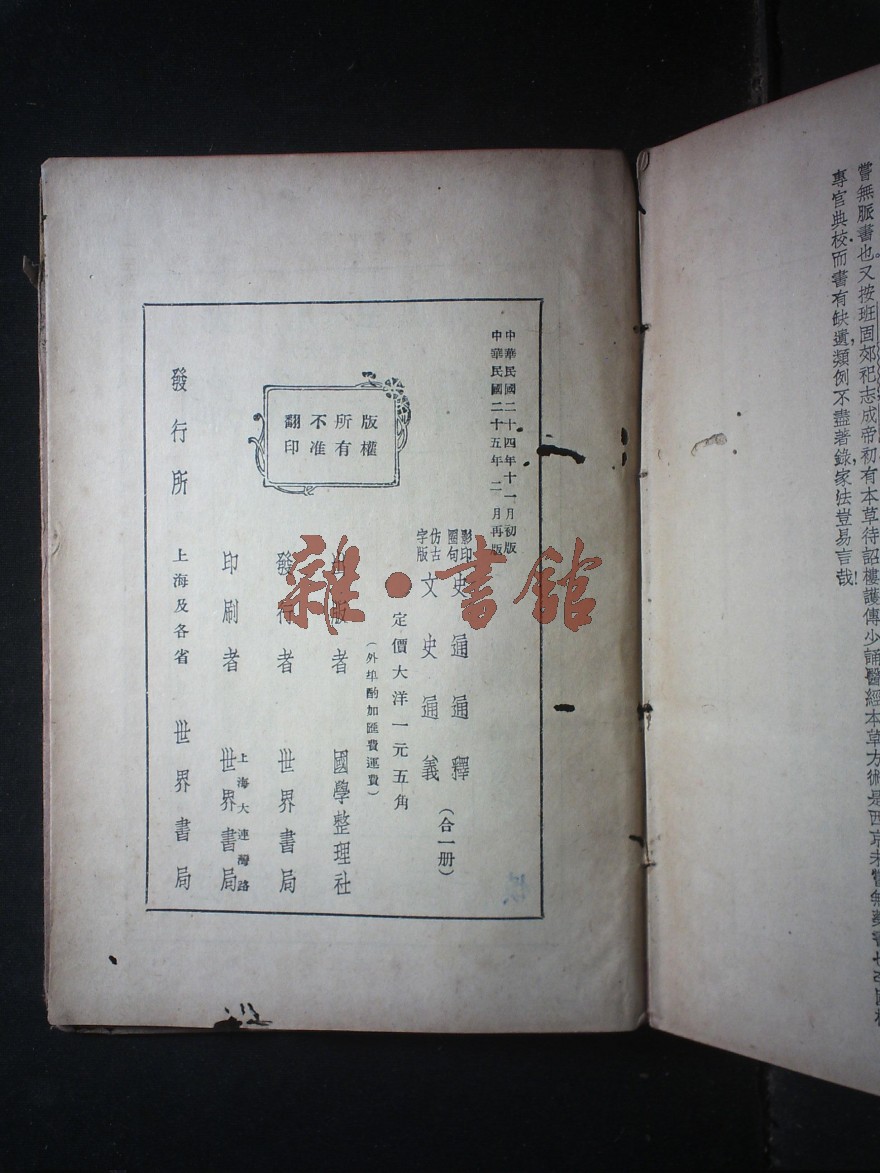 嘗無脈書也。又按班固郊祀志成帝初有本草待詔樓護傳少誦醫經本草方術是西京未嘗無藥書也
專官典校而書有缺遺類例不盡著錄家法豈易言哉!
中華民國二十四年十一月初版
中華民國二十五年二月再版
影印
圈句
史通通釋
仿古
字版
文史通義
(合一册)
定價大洋一元五角
(外埠酌加匯費運費)
版權
所有
不准
翻印
出版者 國學整理社
發行者 世界書局
印刷者 上海大連灣路
世界書局
發行所 上海及各省 世界書局
雜·書館